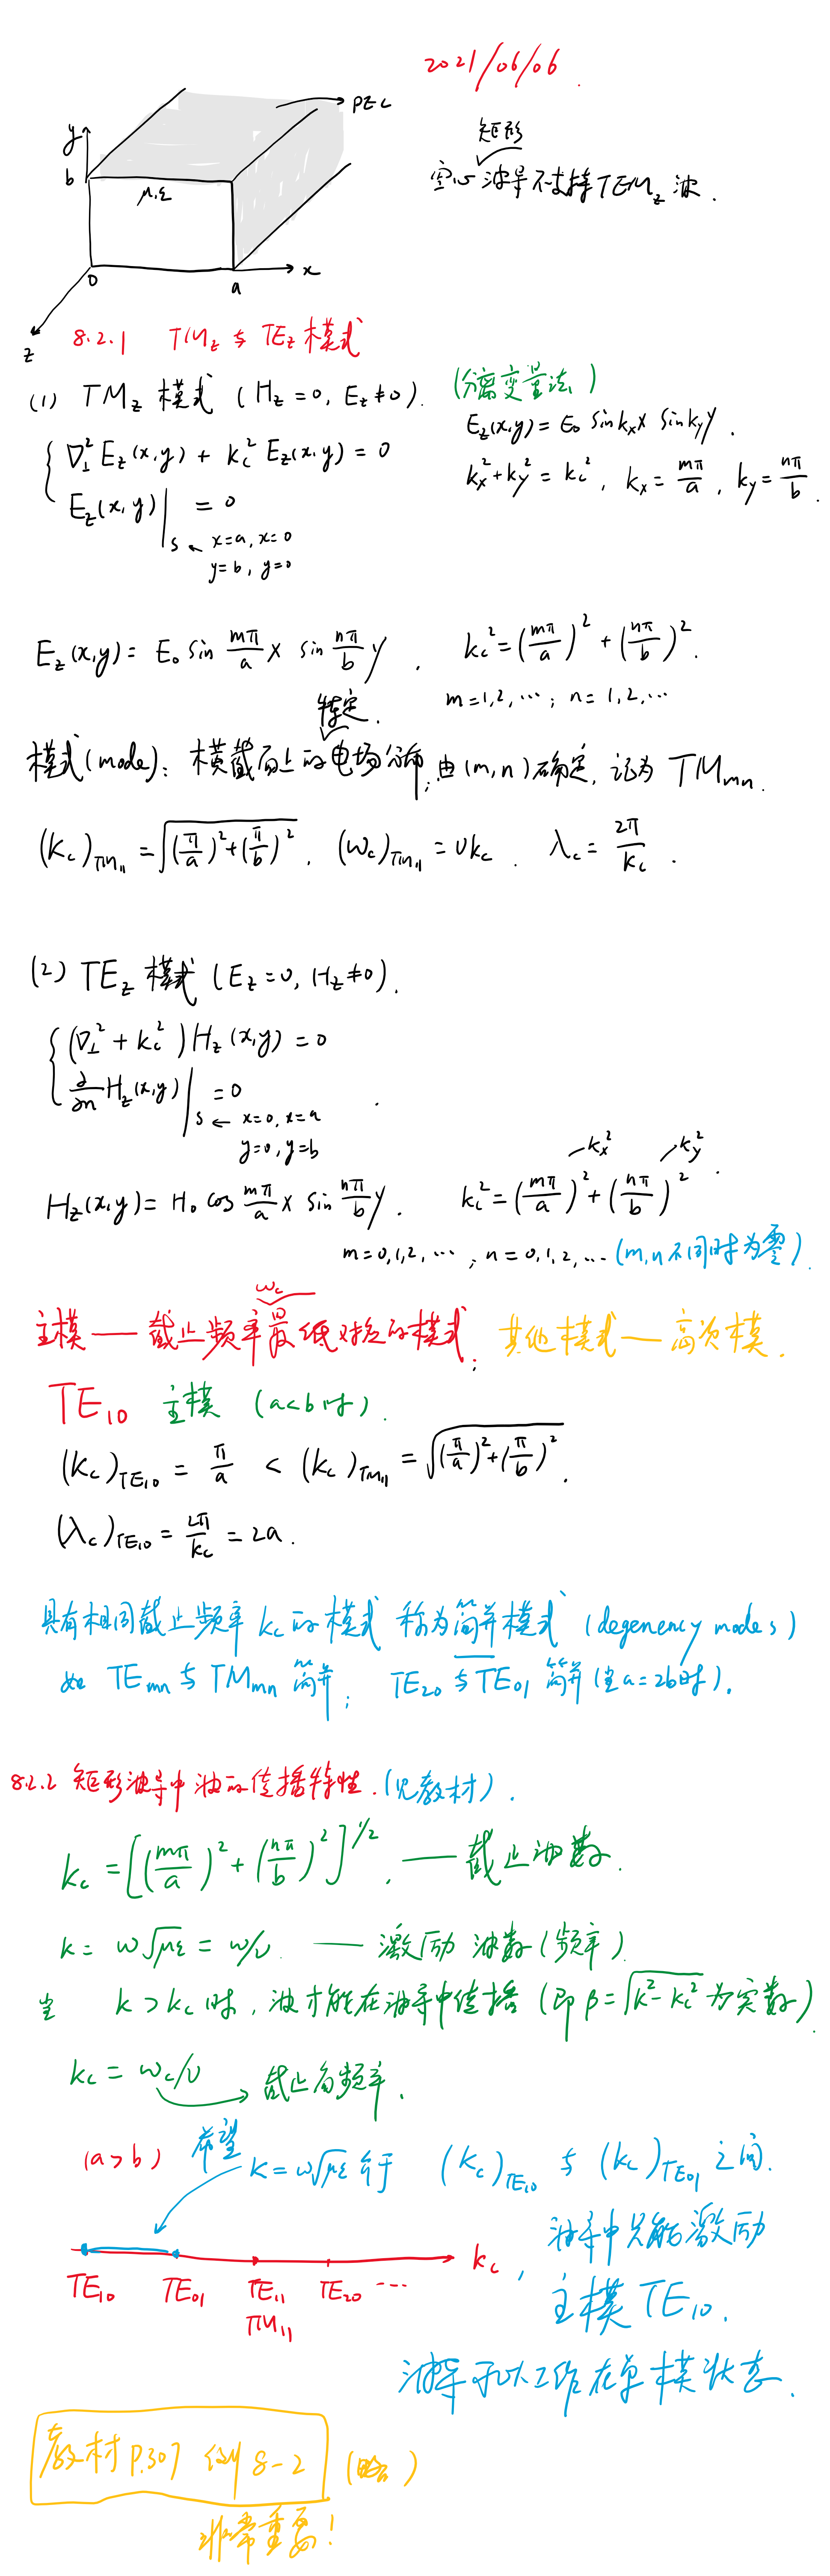 2021/06/06.
PEC
y
b
μ.ε
0
a
x
z
矩形
空心波导不支持TEM_z波.
8.2.1 TM_z与TE_z模式
(1) TM_z模式 (H_z=0, E_z≠0). (分离变量法)
∇⊥²E_z(x,y) + k_c²E_z(x,y) = 0
E_z(x,y)|_S = 0
x=a, x=0
y=b, y=0
E_z(x,y) = E_0 sin k_x x sin k_y y.
k_x²+k_y² = k_c², k_x = mπ/a, k_y = nπ/b.
E_z(x,y) = E_0 sin mπ/a x sin nπ/b y. k_c² = (mπ/a)² + (nπ/b)².
m=1,2,⋯; n=1,2,⋯
特定.
模式(mode): 横截面上的电场分布; 由(m,n)确定, 记为TM_mn.
(k_c)_TM11 = √((π/a)²+(π/b)²). (ω_c)_TM11 = υk_c. λ_c = 2π/k_c.
(2) TE_z模式 (E_z=0, H_z≠0).
(∇⊥² + k_c²)H_z(x,y) = 0
∂/∂n H_z(x,y)|_S = 0
x=0, x=a
y=0, y=b
H_z(x,y) = H_0 cos mπ/a x sin nπ/b y. k_c² = (mπ/a)² + (nπ/b)²
k_x² k_y².
m=0,1,2,⋯; n=0,1,2,⋯ (m,n不同时为零).
ω_c
主模——截止频率最低对应的模式; 其他模式——高次模.
TE_10 主模 (a<b时).
(k_c)_TE10 = π/a < (k_c)_TM11 = √((π/a)²+(π/b)²).
(λ_c)_TE10 = 2π/k_c = 2a.
具有相同截止频率k_c的模式称为简并模式 (degenency modes)
如 TE_mn与TM_mn简并; TE_20与TE_01简并(当a=2b时).
8.2.2 矩形波导中波的传播特性. (见教材).
k_c = [(mπ/a)² + (nπ/b)²]^1/2. —— 截止波数.
k = ω√με = ω/υ. —— 激励波数(频率)
当 k>k_c时, 波才能在波导中传播 (即β=√(k²-k_c²)为实数)
k_c = ω_c/υ 截止角频率.
(a>b) 希望 k=ω√με 介于 (k_c)_TE10 与 (k_c)_TE01 之间.
k_c, 波导中只能激励
TE_10 TE_01 TE_11 TE_20 ⋯
TM_11
主模TE_10.
波导可以工作在单模状态.
教材P.307 例8-2 (略)
非常重要!